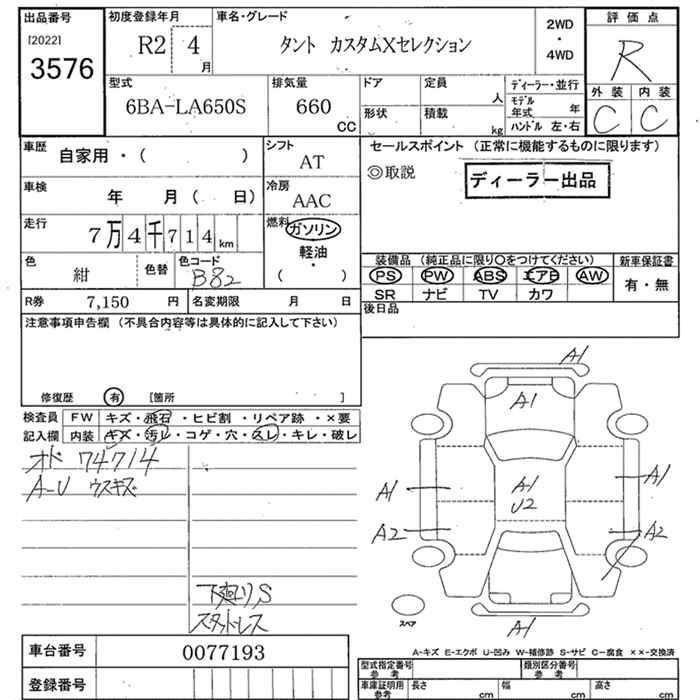 出品番号 初度登録年月 車名・グレード 2WD・4WD 評価点
[2022]
3576 R2 4月 タント カスタムXセレクション R
型式 排気量 ドア 定員 人 ディーラー・並行 外装 内装
6BA-LA650S 660 CC 形状 積載 kg モデル年式 年 C C
ハンドル 左・右
車歴 自家用・( ) シフト AT セールスポイント (正常に機能するものに限ります)
◎取説 ディーラー出品
車検 年 月 ( 日) 冷房 AAC
走行 7万4千714km 燃料 ガソリン
軽油
・
( )
色 紺 色替 色コード B82
装備品 (純正品に限り○をつけてください) 新車保証書
PS PW ABS エアB AW 有・無
SR ナビ TV カワ
R券 7,150 円 名変期限 月 日
後日品
注意事項申告欄 (不具合内容等は具体的に記入して下さい)
修復歴 有 [箇所 ]
検査員 FW キズ・飛石・ヒビ割・リペア跡・×要
記入欄 内装 キズ・汚レ・コゲ・穴・スレ・キレ・破レ
オド 74714
A-U ウスキズ
下廻りS
スタッドレス
A1
A1
A1 A1 U2 A1
A2 A2
スペア
A1
A-キズ E-エクボ U-凹み W-補修跡 S-サビ C-腐食 ××-交換済
車台番号 0077193
登録番号
型式指定番号 参考 類別区分番号 参考
車庫証明用 参考 長さ cm 幅 cm 高さ cm